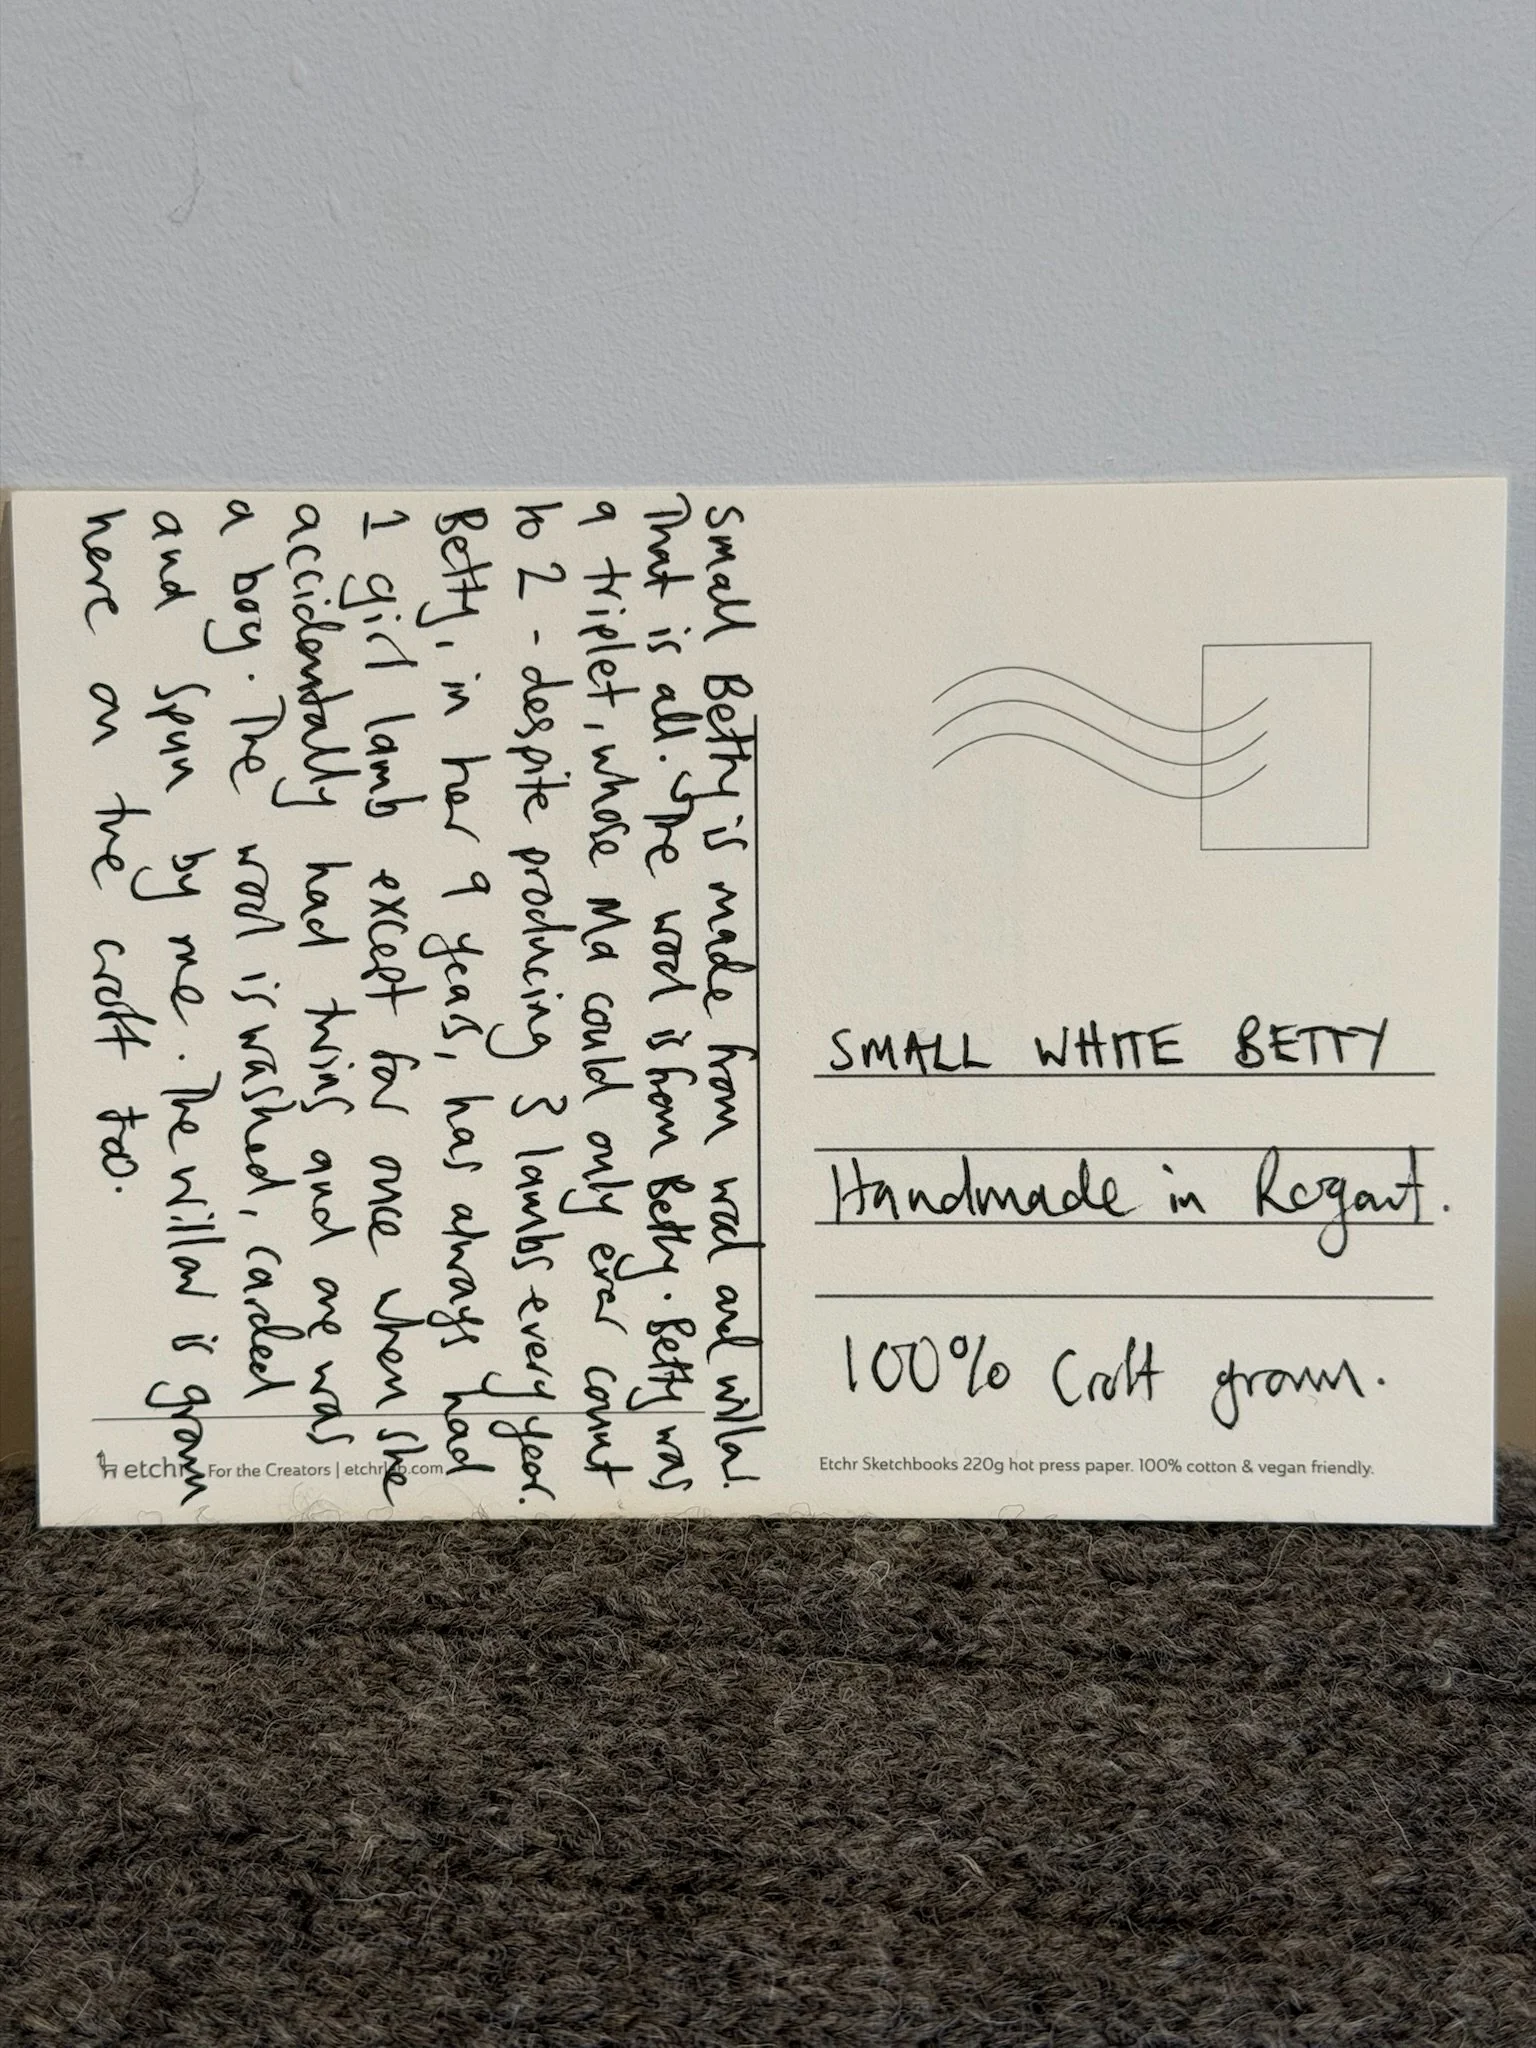 Small Betty is made from wool and willow.
That is all. The wool is from Betty. Betty was
a triplet, whose Ma could only ever count
to 2 - despite producing 3 lambs every year.
Betty, in her 9 years, has always had
1 girl lamb except for once when she
accidentally had twins and one was
a boy. The wool is washed, carded
and spun by me. The willow is grown
here on the croft too.
SMALL WHITE BETTY
Handmade in Rogart.
100% Croft grown.
etchr For the Creators | etchrlab.com
Etchr Sketchbooks 220g hot press paper. 100% cotton & vegan friendly.